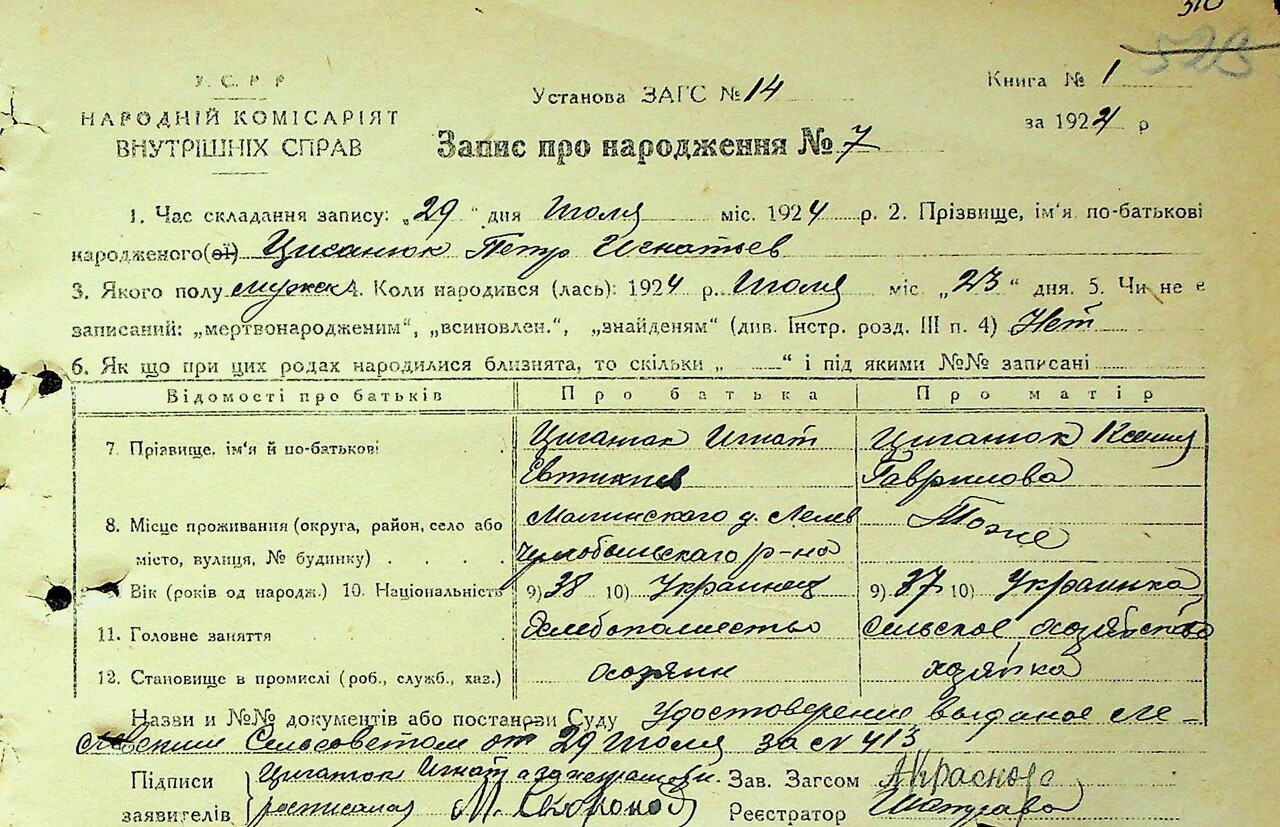 310
523
У.С.Р.Р
НАРОДНІЙ КОМІСАРІЯТ
ВНУТРІШНІХ СПРАВ
Установа ЗАГС № 14
Книга № 1
за 1924 р
Запис про народження № 7
1. Час складання запису: „29“ дня Июля міс. 1924 р. 2. Прізвище, ім'я по-батькові
народженого(ої) Циганюк Петр Игнатьев
3. Якого полу мужск 4. Коли народився (лась): 1924 р. Июля міс „23“ дня. 5. Чи не є
записаний: „мертвонародженим“, „всиновлен.“, „знайденям“ (див. Інстр. розд. III п. 4) Нет
6. Як що при цих родах народилися близнята, то скільки „ “ і під якими №№ записані
Відомості про батьків Про батька Про матір
7. Прізвище, ім'я й по-батькові Циганюк Игнат Циганюк Ксения
Евтихиев Гаврилова
8. Місце проживання (округа, район, село або Малинского у. Лелев Тоже
місто, вулиця, № будинку) Чернобыльскаго р-на
Вік (років од народж.) 10. Національність 9) 38 10) Украинец 9) 37 10) Украинка
11. Головне заняття Хлебопашество Сельское хозяйство
12. Становище в промислі (роб., служб., хаз.) хозяин хозяйка
Назви и №№ документів або постанови Суду Удостоверение выданое Ле-
левским Сельсоветом от 29 Июля за № 413
Підписи Циганюк Игнат а за неграмотн. Зав. Загсом
заявителів М. Реєстратор